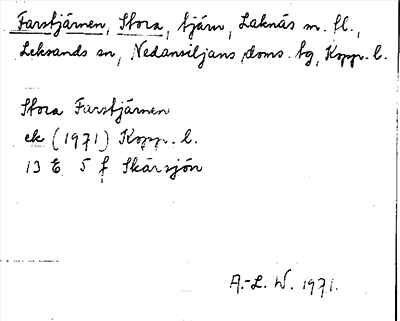 Farstjärnen, Stora, tjärn, Laknäs m. fl.,
Leksands sn, Nedansiljans doms. tg, Kopp. l.
Stora Farstjärnen
ek (1971) Kopp. l.
13 E 5 f Skärsjön
A.-L. W. 1971.